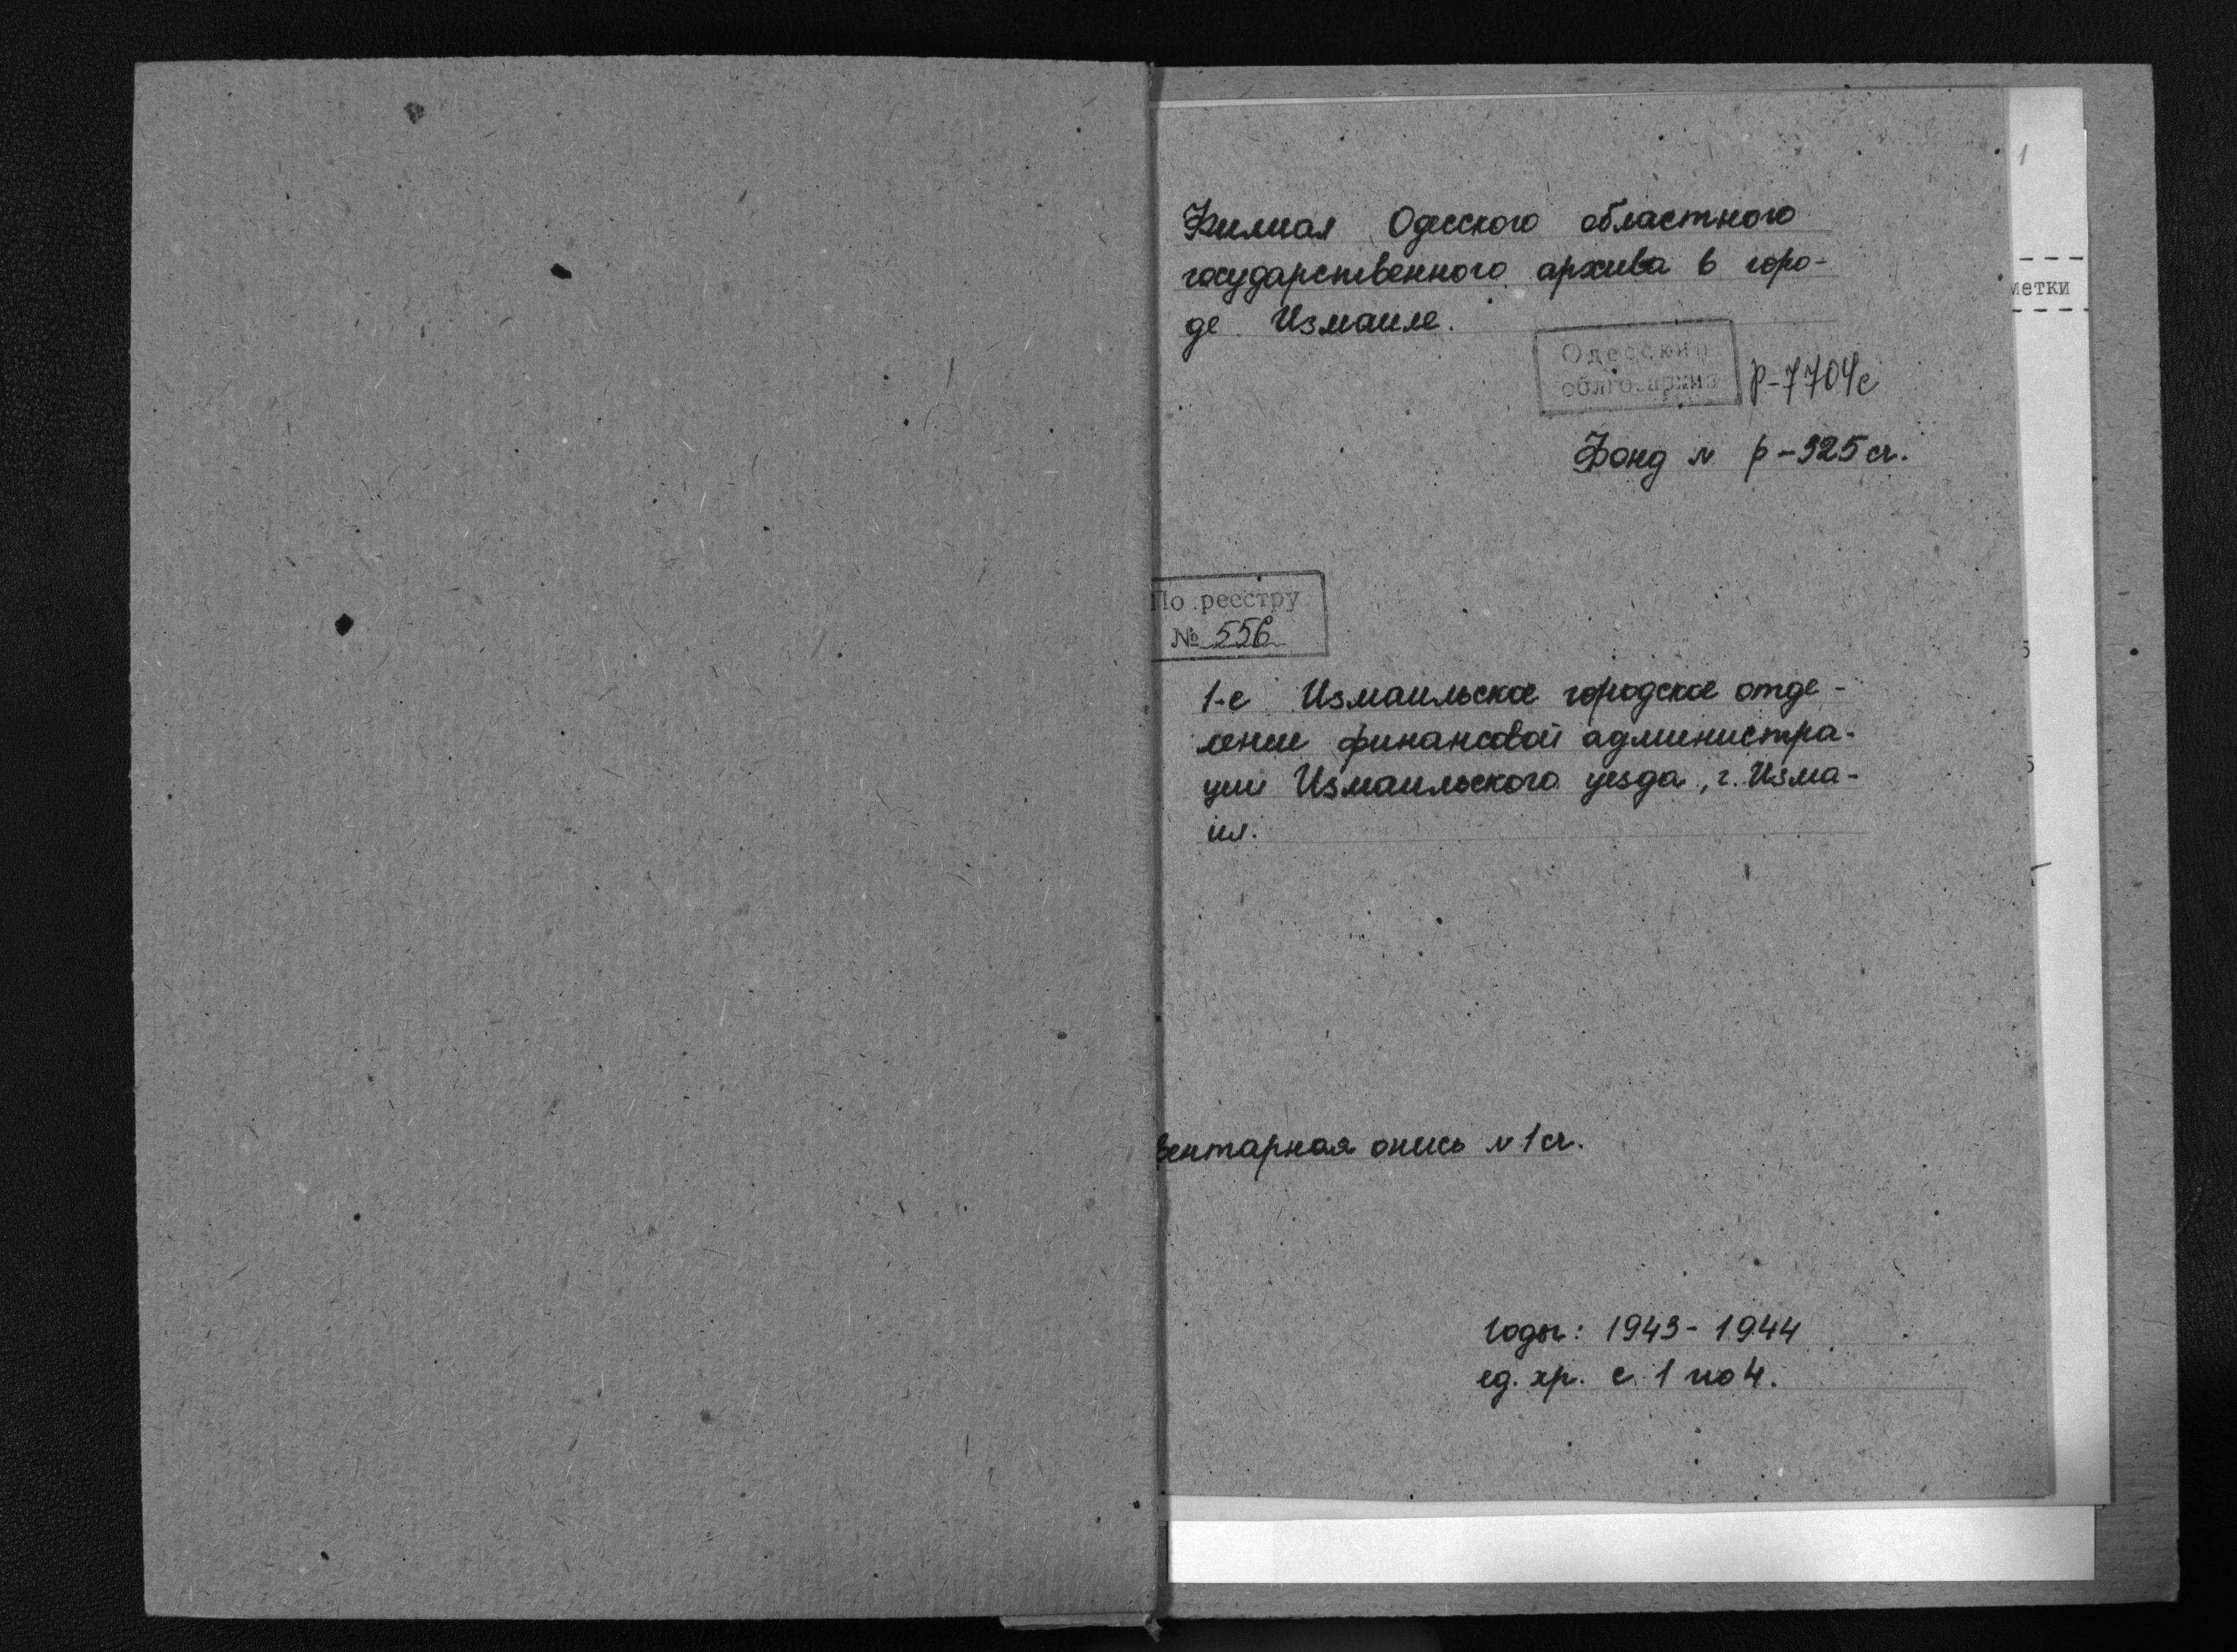 1
Филиал Одесского областного
государственного архива в горо-
де Измаиле.
метки
Одесский
облгосархив
р-7704с
Фонд № р-325сч.
По реестру
№ 556
1-е Измаильское городское отде-
ление финансовой администра-
ции Измаильского уезда, г. Изма-
ил.
вентарная опись № 1сч.
Годы: 1943-1944
ед. хр. с 1 по 4.